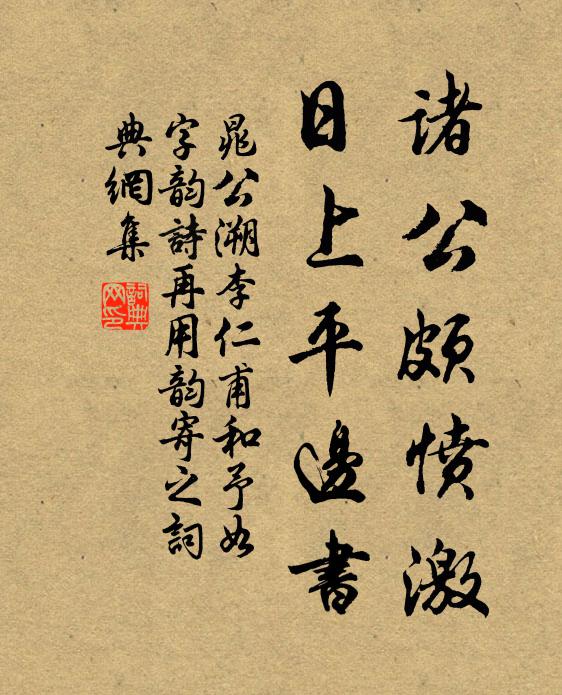 諸公頗憤激
日上平邊書
晁公溯李仁甫和予如
字韵詩再用韵寄之詞
典網集
詞典网印